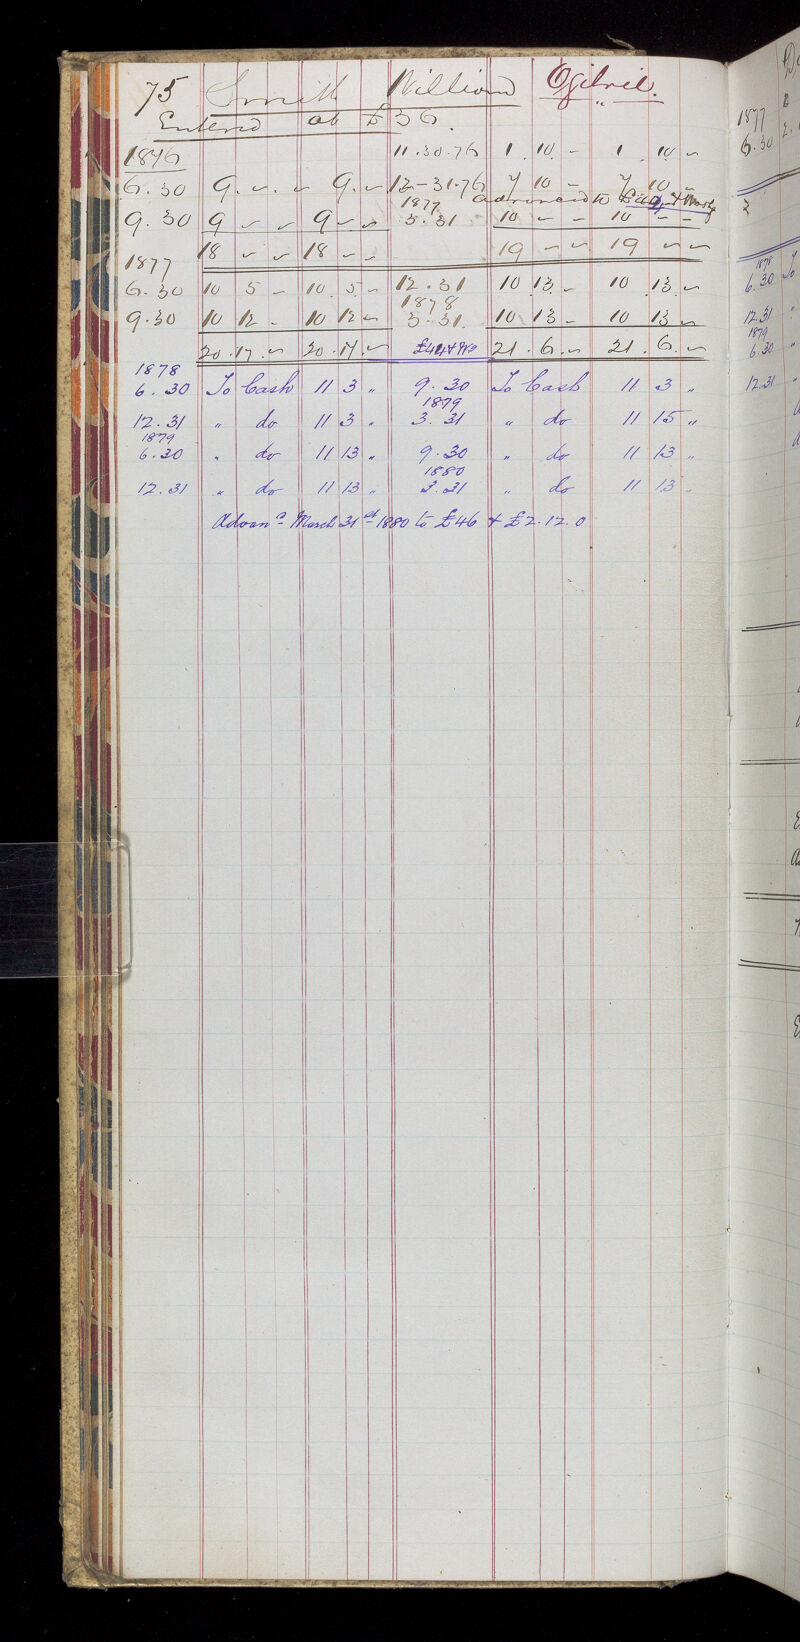 75 Smith William Ogilvie.
Entered at £36.
1876 11.30.76 1 . 10 . - 1 . 10 -
6.30 9 . - . - 9 . - 12-31.76 7 10 - 7 10 -
1877 advanced to £40
9.30 9 - - 9 - - 3.31 10 - - 10 - -
18 - - 18 - - 19 - - 19 - -
1877
6.30 10 5 - 10 . 5 - 12.31 10 13 - 10 13 -
1878
9.30 10 12 - 10 12 - 3.31. 10 13 - 10 13 -
20.17 - 20.17 - 21 . 6 - 21 . 6 -
1878
6.30 To Cash 11 3 " 9.30 To Cash 11 3 "
1879
12.31 " do 11 3 " 3.31 " do 11 15 "
1879
6.30 " do 11 13 " 9.30 " do 11 13 "
1880
12.31 " do 11 13 " 3.31 " do 11 13 "
Advanc March 31st 1880 to £46 + £2.12.0
1877
6.30
1878
6.30 To
12.31 "
1879
6.30 "
12.31 "